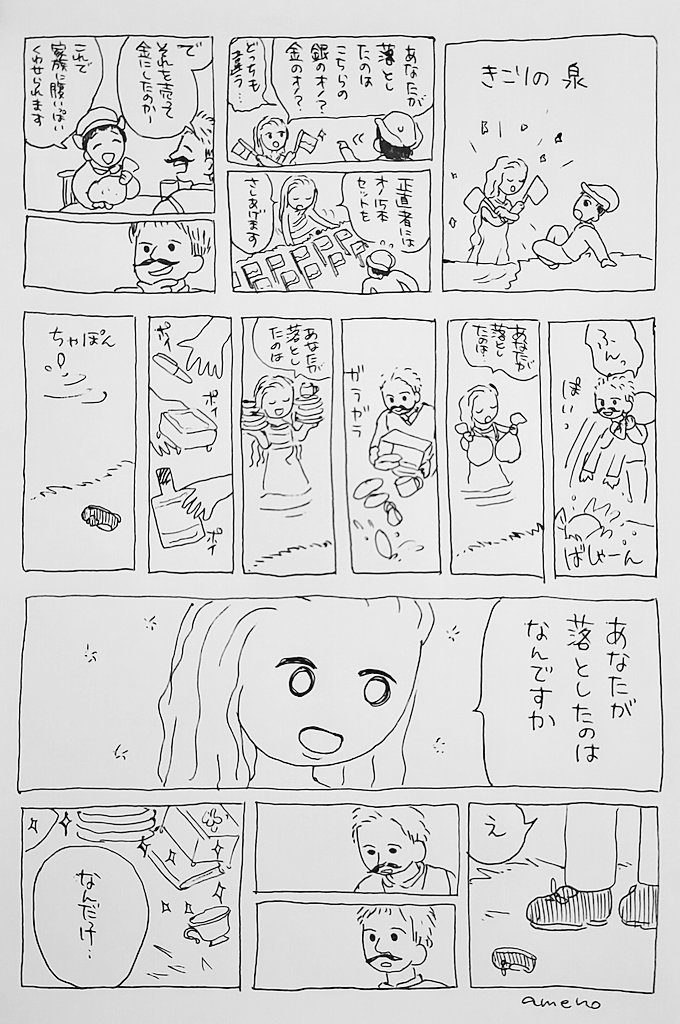 きこりの泉
あなたが
落とし
たのは
こちらの
銀のオノ?
金のオノ?
どっちも
違う…
正直者には
オノ15本
セットを
さしあげます
で
それを売って
金にしたのか
これで
家族に腹いっぱい
くわせられます
ふんっ
ぽいっ
ばしゃーん
あなたが
落とし
たのは
ガラガラ
あなたが
落とし
たのは
ポイ
ポイ
ポイ
ちゃぽん
あなたが
落としたのは
なんですか
え
なんだけ…
ameno